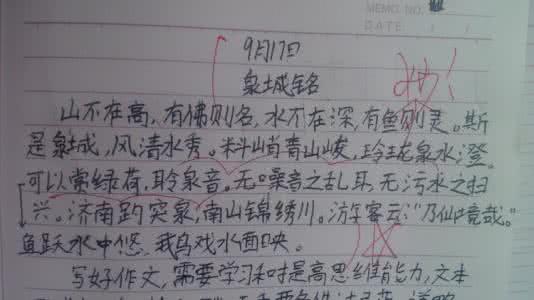 MEMO NO.
DATE
9月17日
泉城铭
妙!
山不在高,有佛则名,水不在深,有鱼则灵。斯
是泉城,风清水秀。料峭青山峻,玲珑泉水澄。
可以赏绿荷,聆泉音。无噪音之乱耳,无污水之扫
兴。济南趵突泉,南山锦绣川。游客云:“乃仙境哉。”
鱼跃水中悠,我鸟戏水面映。
写好作文,需要学习和时提高思维能力,文本